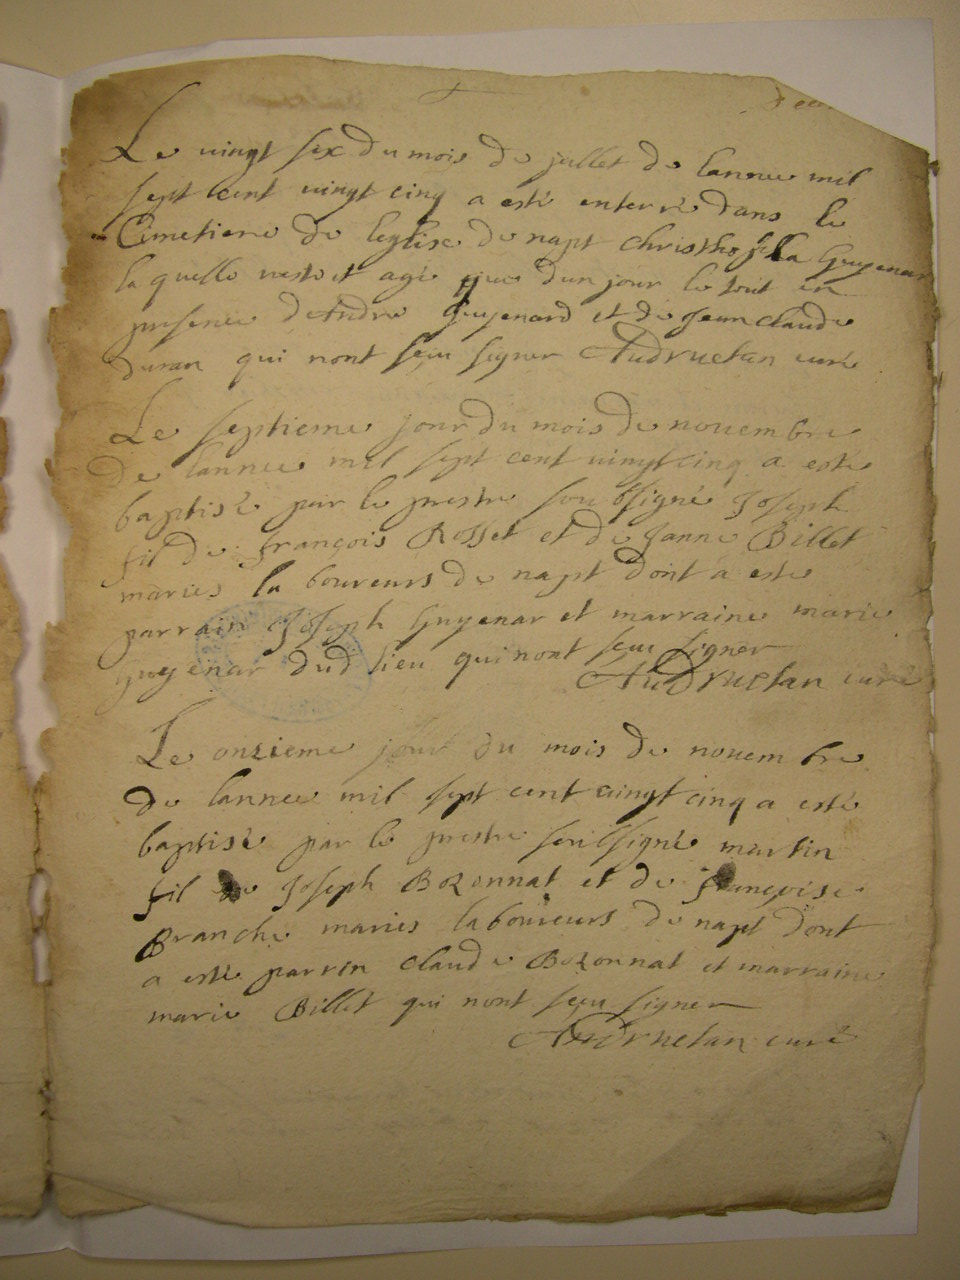 Le vingt six du mois de jullet de lannee mil
sept cent vingt cinq a esté enterré dans le
Cimetiere de leglise de napt christhofla Guyenar
la quelle nestoit agé que dun jour le tout en
presence dAndre Guyenard et de Jean claude
duran qui nont sçeu signer AuDruetan curé
Le septieme jour du mois de nouembre
de lannee mil sept cent vingt cinq a esté
baptisé par le prestre soubsigné Joseph
fil de françois Rosset et de Janne Billet
mariés laboureurs de napt dont a esté
parrain Joseph Guyenar et marraine marie
guyenar dud lieu qui nont sçeu signer
AuDruetan curé
Le onzieme jour du mois de nouembre
de lannee mil sept cent vingt cinq a esté
baptisé par le prestre soubsigné martin
fil de Joseph Bozonnat et de françoise
Branche mariés laboureurs de napt dont
a esté parrin claude Bozonnat et marraine
marie Billet qui nont sçeu signer
AuDruetan curé